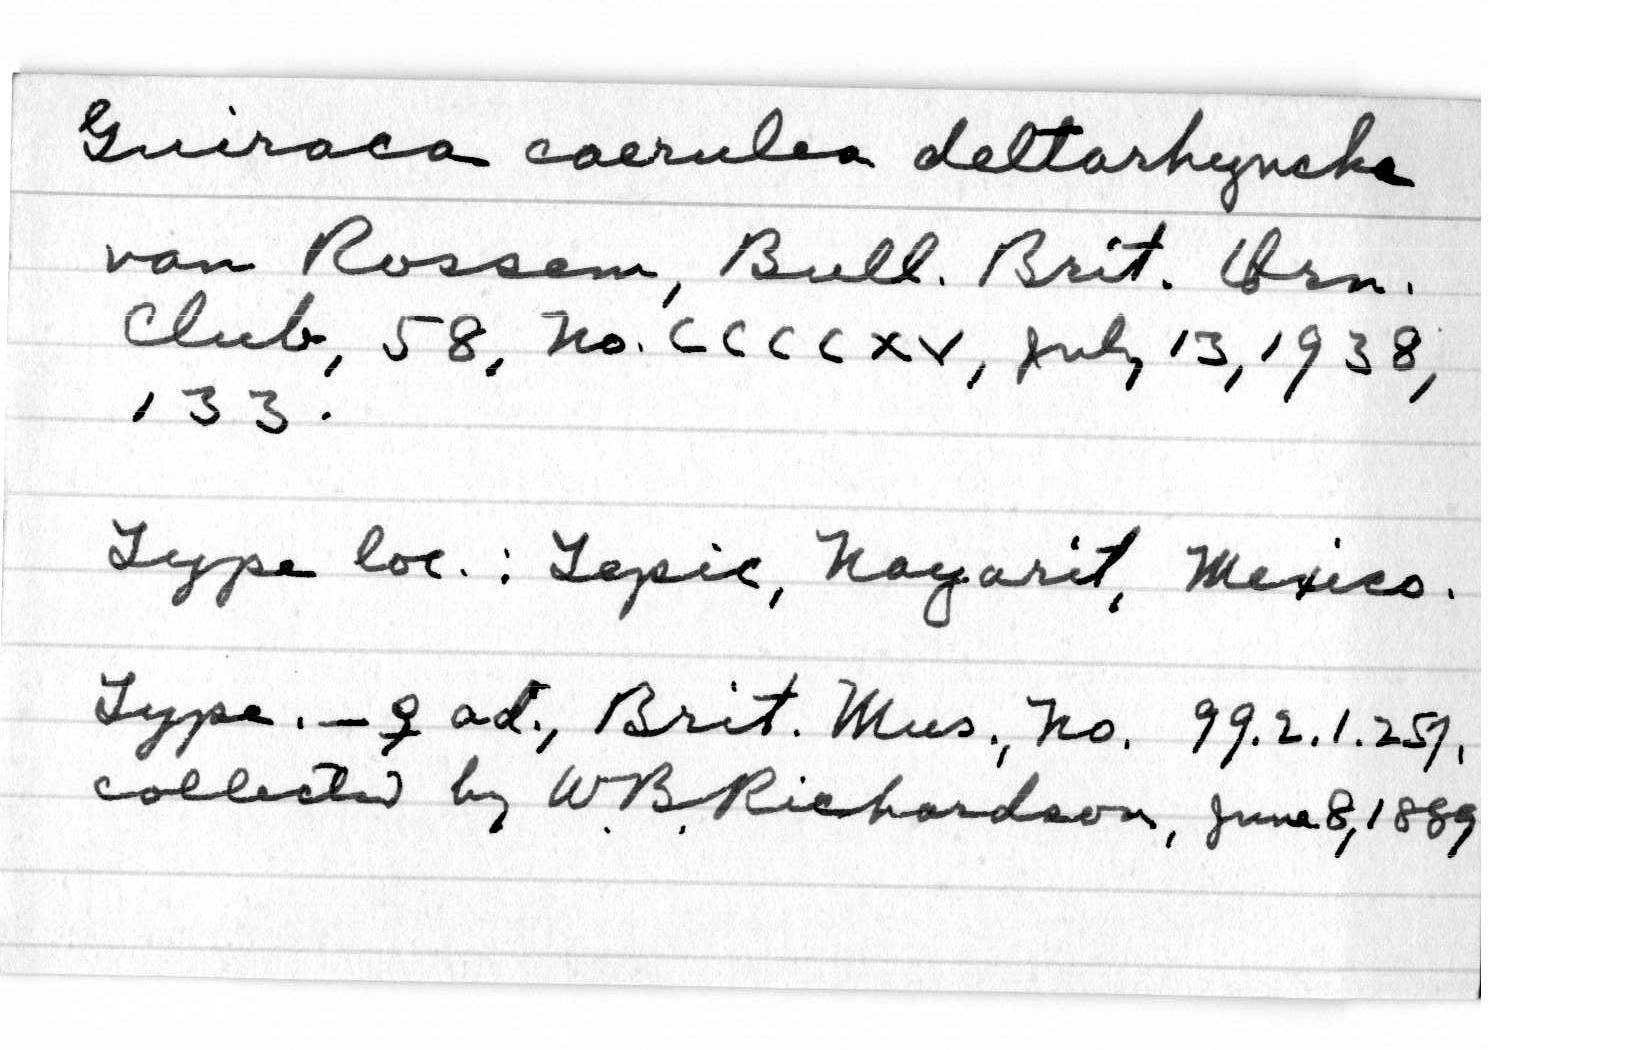 Guiraca caerulea deltarhyncha
van Rossem, Bull. Brit. Orn.
Club, 58, no. CCCCXV, July 13, 1938,
133.
Type loc. : Tepic, Nayarit, Mexico.
Type. — ♀ ad., Brit. Mus., no. 99.2.1.257,
collected by W. B. Richardson, June 8, 1889